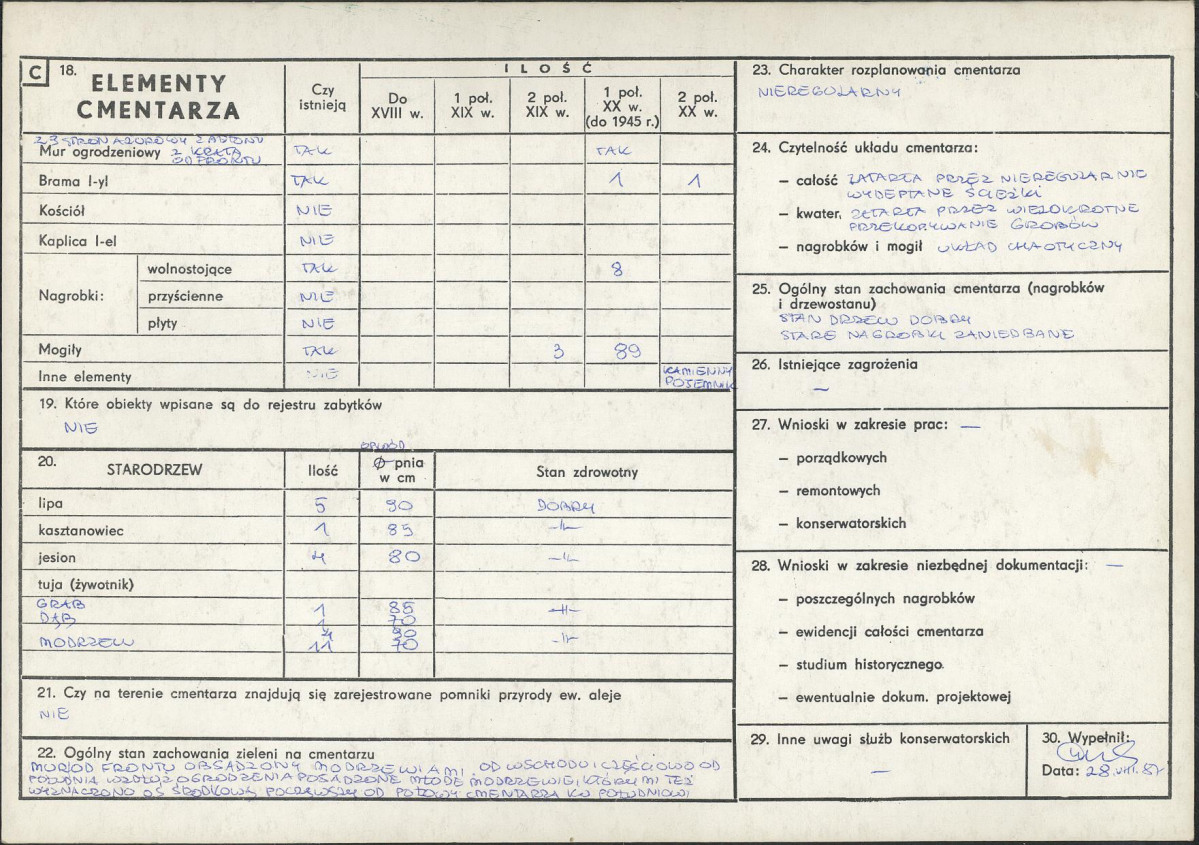 C 18. ELEMENTY CMENTARZA
Czy istnieją
ILOŚĆ
Do XVIII w.
1 poł. XIX w.
2 poł. XIX w.
1 poł. XX w. (do 1945 r.)
2 poł. XX w.
Z 3 STRON AŻUROWY Z BETONU
Mur ogrodzeniowy Z KRATĄ TAK TAK
OD FRONTU
Brama I-yl TAK 1 1
Kościół NIE
Kaplica I-el NIE
Nagrobki:
wolnostojące TAK 8
przyścienne NIE
płyty NIE
Mogiły TAK 3 89
Inne elementy NIE KAMIENNY POJEMNIK
19. Które obiekty wpisane są do rejestru zabytków
NIE
20. STARODRZEW
Ilość
OBWÓD
Ø pnia w cm
Stan zdrowotny
lipa 5 90 DOBRY
kasztanowiec 1 85 -II-
jesion 4 80 -II-
tuja (żywotnik)
GRAB 1 85 -II-
DĄB 1 70
4 90
MODRZEW 11 70 -II-
21. Czy na terenie cmentarza znajdują się zarejestrowane pomniki przyrody ew. aleje
NIE
22. Ogólny stan zachowania zieleni na cmentarzu
MUR OD FRONTU OBSADZONY MODRZEWIAMI. OD WSCHODU I CZĘŚCIOWO OD
POŁUDNIA WZDŁUŻ OGRODZENIA POSADZONE MŁODE MODRZEWIE, KTÓRYMI TEŻ
WYZNACZONO OŚ ŚRODKOWĄ POCZĄWSZY OD POŁOWY CMENTARZA KU POŁUDNIOWI
23. Charakter rozplanowania cmentarza
NIEREGULARNY
24. Czytelność układu cmentarza:
– całość ZATARTA PRZEZ NIEREGULARNIE
WYDEPTANE ŚCIEŻKI
– kwater, ZATARTA PRZEZ WIELOKROTNE
PRZEKOPYWANIE GROBÓW
– nagrobków i mogił UKŁAD CHAOTYCZNY
25. Ogólny stan zachowania cmentarza (nagrobków
i drzewostanu)
STAN DRZEW DOBRY
STARE NAGROBKI ZANIEDBANE
26. Istniejące zagrożenia
—
27. Wnioski w zakresie prac: —
– porządkowych
– remontowych
– konserwatorskich
28. Wnioski w zakresie niezbędnej dokumentacji: —
– poszczególnych nagrobków
– ewidencji całości cmentarza
– studium historycznego
– ewentualnie dokum. projektowej
29. Inne uwagi służb konserwatorskich
—
30. Wypełnił:
Data: 28.VIII.87